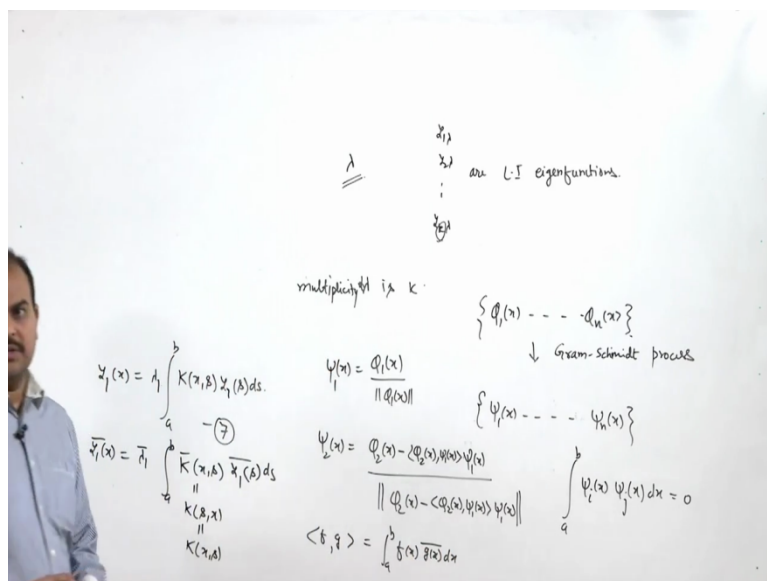 λ
z₁λ
z₂λ
⋮
z_kλ
are L.I eigenfunctions.
multiplicity of λ is k.
{φ₁(x) - - - - - φₙ(x)}
↓ Gram-Schmidt process
{ψ₁(x) - - - - - ψₙ(x)}
∫ₐᵇ ψᵢ(x) ψⱼ(x) dx = 0
z₁(x) = λ₁ ∫ₐᵇ K(x,s) z₁(s) ds.
- ⑦
z̅₁(x) = λ̅₁ ∫ₐᵇ K̅(x,s) z̅₁(s) ds
||
K(s,x)
||
K(x,s)
ψ₁(x) = φ₁(x) / ||φ₁(x)||
ψ₂(x) = φ₂(x) - <φ₂(x), ψ(x)> ψ₁(x) / || φ₂(x) - <φ₂(x), ψ₁(x)> ψ₁(x) ||
<f, g> = ∫ₐᵇ f(x) g̅(x) dx